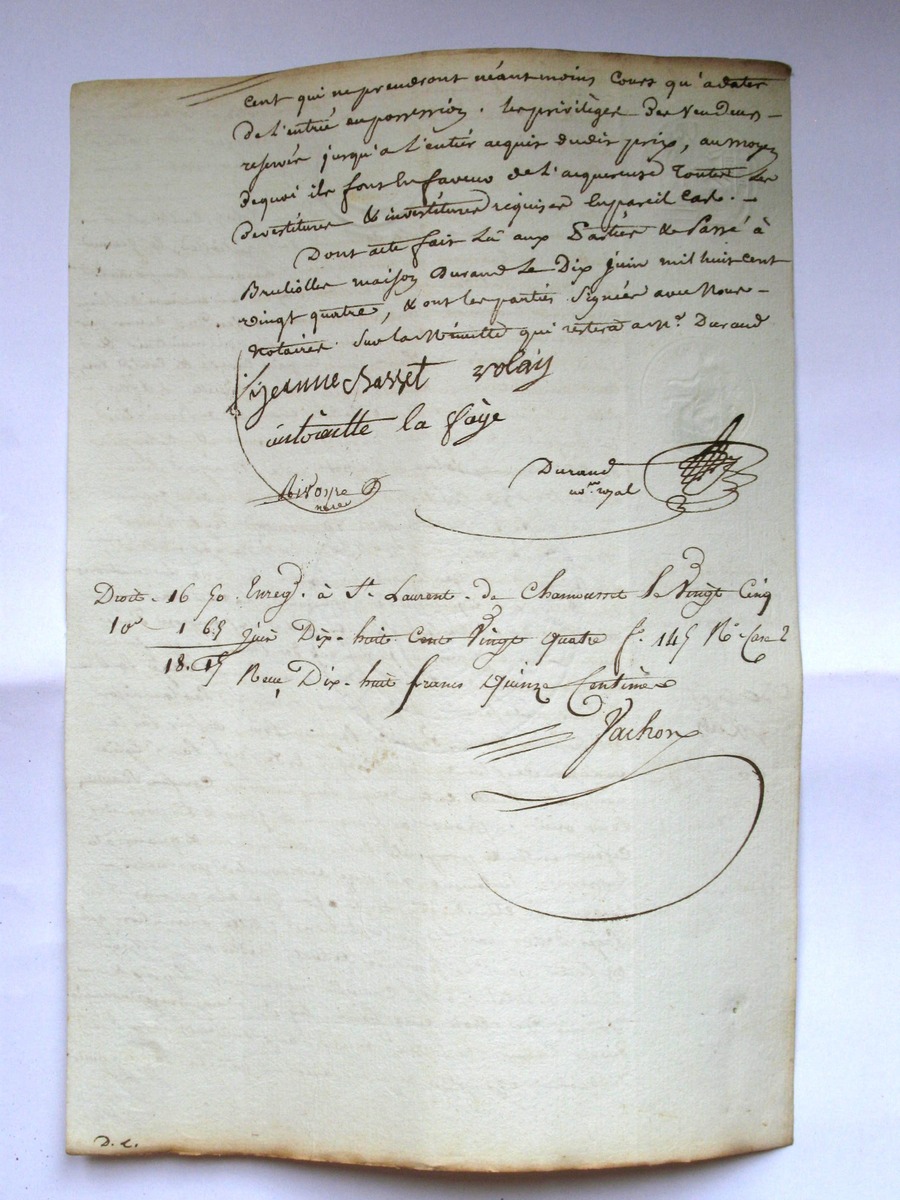 cent qui ne prendront néantmoins cours qu'à dater
de l'entrée en possession. les privilèges des vendeurs
reservés jusqu'a l'entier acquis dudit prix, au moyen
dequoi ils font en faveur de l'acquereuse toutes les
devestitures & investitures requises en pareil cas. —
Dont acte fait lû aux Parties & Passé à
Brulliolles maison Durand Le Dix juin mil huit cent
vingt quatre, & ont les parties signées avec Nous —
Notaires. Sur la Minutte qui restera a Me. Durand
jeanne Basset volay
antoinette la faÿe
Durand
Rivoyre
nore. royal
Droit - 16 50 Enregé. à St. Laurent - de Chamousset le Vingt Cinq
10e 1 65 juin Dix-huit Cent Vingt quatre f. 145 Ro. Case 2
18. 15 Reçu Dix-huit francs Quinze Centimes
Vachon
D. L.